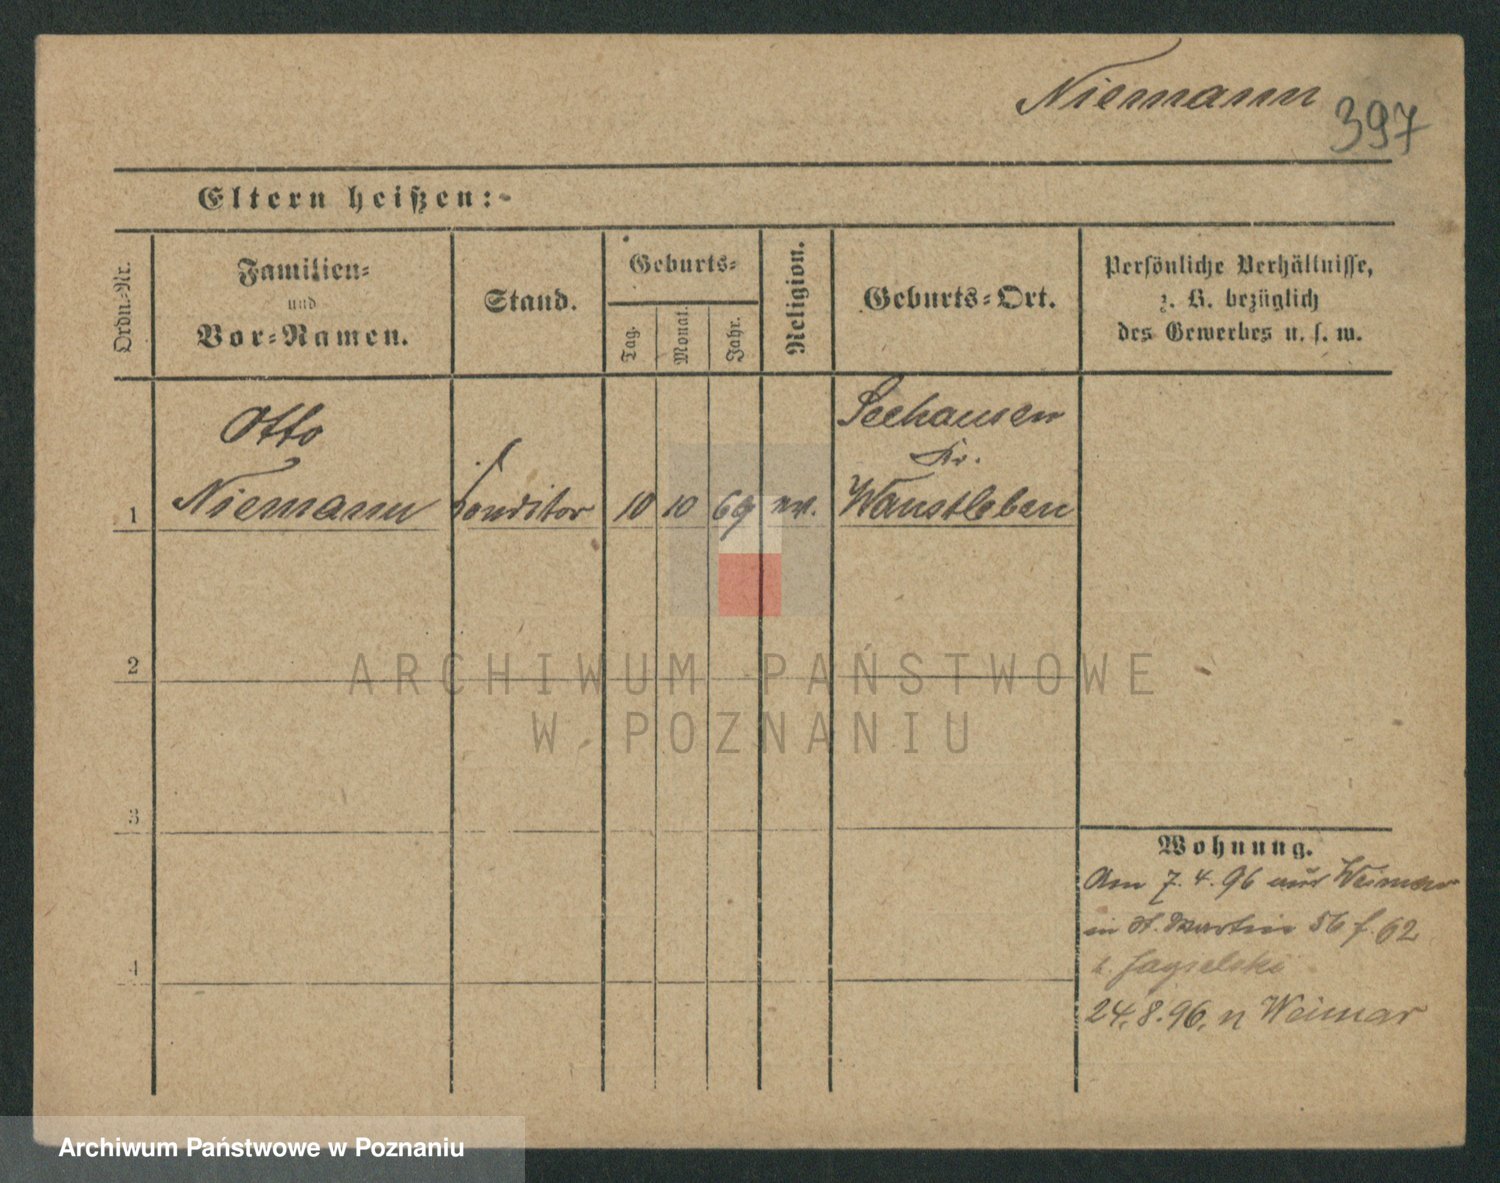 Niemann
397
Eltern heißen:-
Ordn.-Nr.
Familien-
und
Vor-Namen.
Stand.
Geburts-
Tag.
Monat.
Jahr.
Religion.
Geburts-Ort.
Persönliche Verhältnisse,
z. B. bezüglich
des Gewerbes u. s. w.
Otto
Niemann
Conditor
10
10
69
ev.
Seehausen
Kr.
Wanstleben
1
2
3
4
Wohnung.
Am 7.4.96 aus Weimar
in St. Martin 56 f. 62
24.8.96. n Weimar
ARCHIWUM PAŃSTWOWE
W POZNANIU
Archiwum Państwowe w Poznaniu